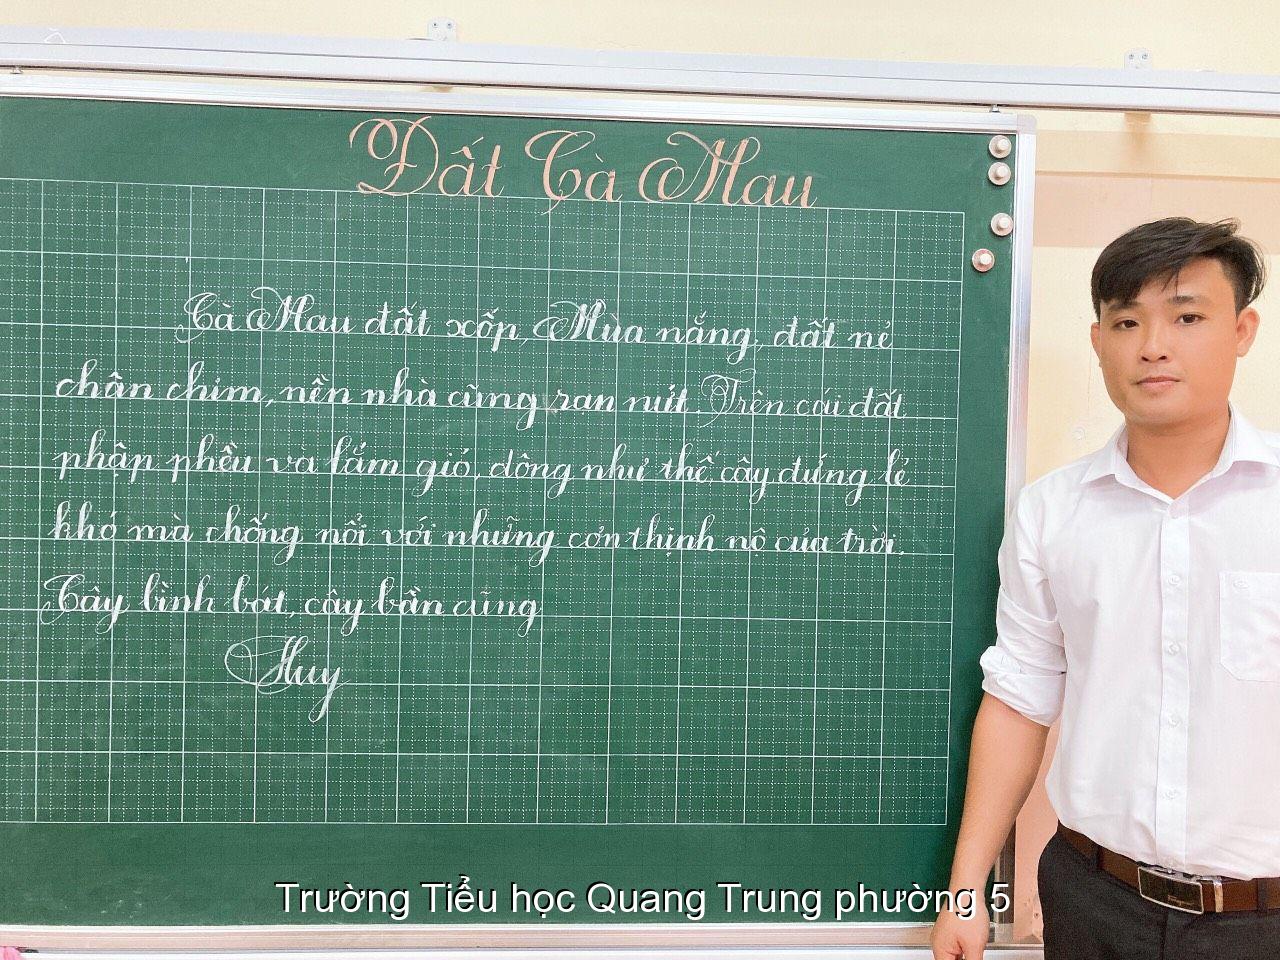 Đất Cà Mau
Cà Mau đất xốp, Mùa nắng, đất nẻ
chân chim, nền nhà cũng rạn nứt. Trên cái đất
phập phều và lắm gió, dông như thế, cây đứng lẻ
khó mà chống nổi với những cơn thịnh nộ của trời.
Cây bình bát, cây bần cũng
Huy
Trường Tiểu học Quang Trung phường 5